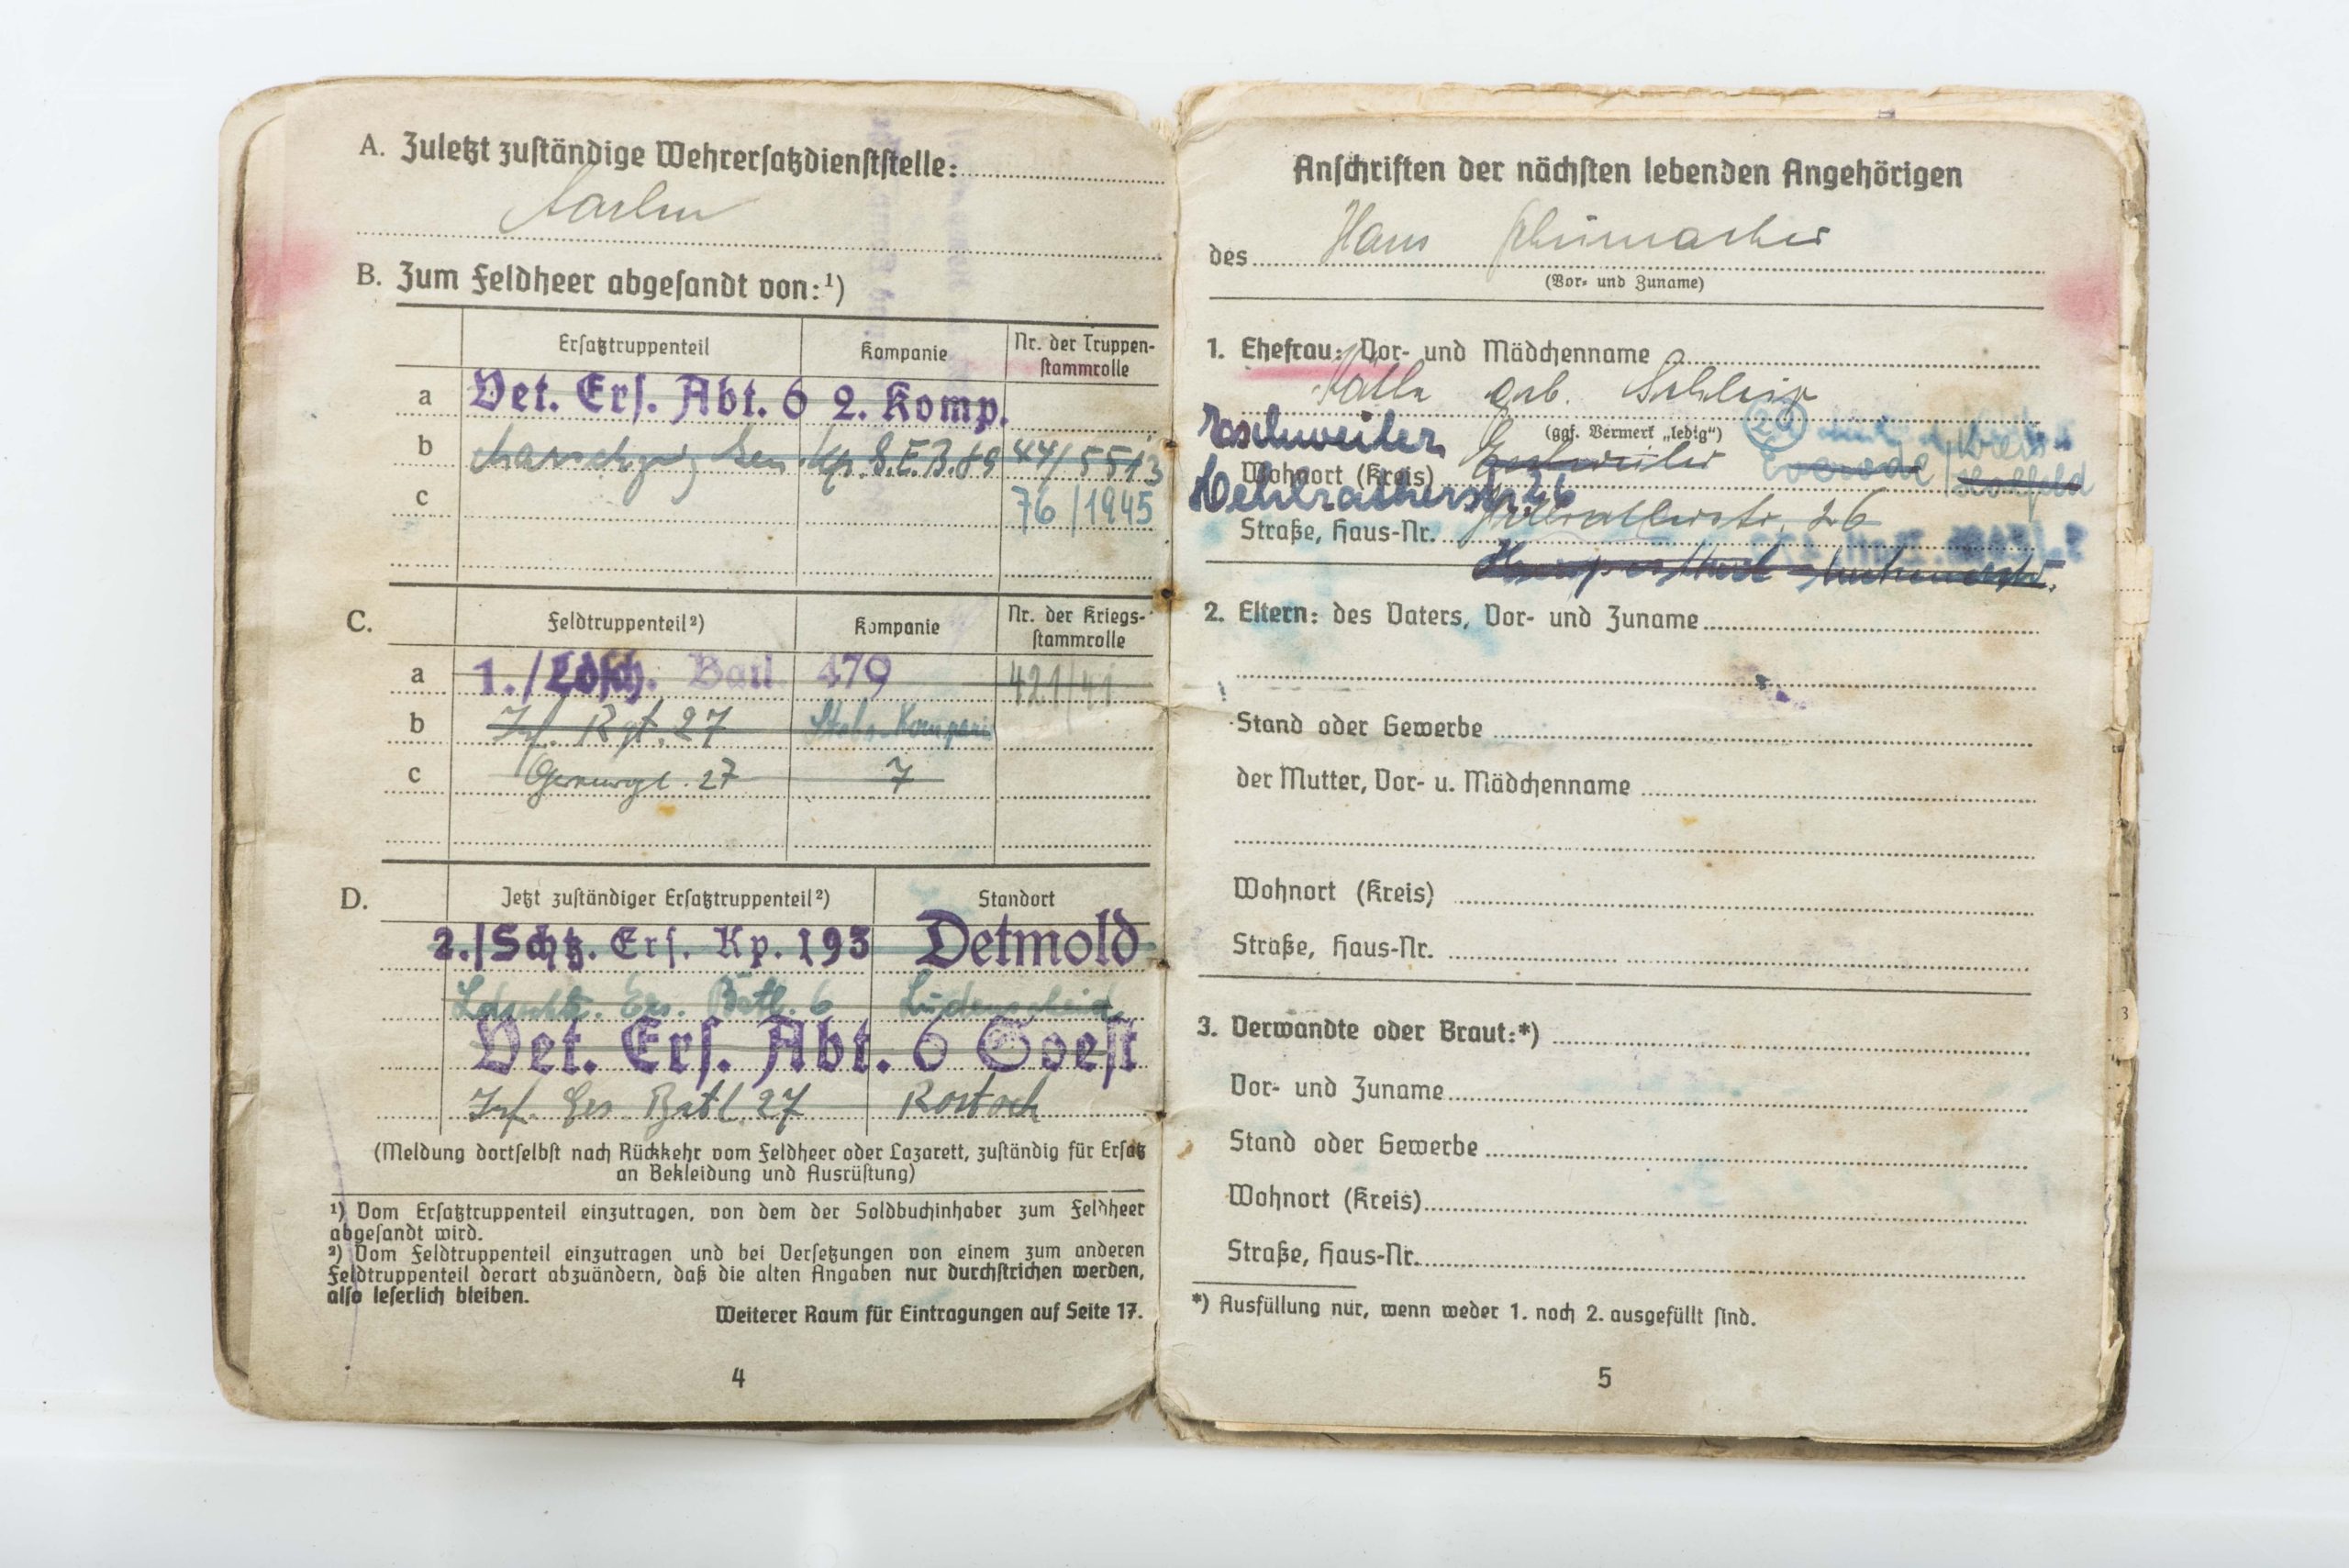 A. Zuletzt zuständige Wehrersatzdienststelle:
Aachen
B. Zum Feldheer abgesandt von:¹)
Ersatztruppenteil Kompanie Nr. der Truppen-
stammrolle
a Vet. Ers. Abt. 6 2. Komp.
b 44/5513
c 76/1945
C. Feldtruppenteil²) Kompanie Nr. der Kriegs-
stammrolle
a 1./Ldsch. Batl 479 421/41
b Inf. Rgt. 27 Stabs Kompanie
c 27 7
D. Jetzt zuständiger Ersatztruppenteil²) Standort
2./Schtz. Ers. Kp. 193 Detmold
Ldsch. Ers. Batl. 6 Lüdenscheid
Vet. Ers. Abt. 6 Soest
Inf. Ers Batl. 27 Rostock
(Meldung dortselbst nach Rückkehr vom Feldheer oder Lazarett, zuständig für Ersatz
an Bekleidung und Ausrüstung)
¹) Vom Ersatztruppenteil einzutragen, von dem der Soldbuchinhaber zum Feldheer
abgesandt wird.
²) Vom Feldtruppenteil einzutragen und bei Versetzungen von einem zum anderen
Feldtruppenteil derart abzuändern, daß die alten Angaben nur durchstrichen werden,
also leserlich bleiben.
Weiterer Raum für Eintragungen auf Seite 17.
4
Anschriften der nächsten lebenden Angehörigen
des Hans Schumacher
(Vor- und Zuname)
1. Ehefrau: Vor- und Mädchenname
geb.
(ggf. Vermerk „ledig“)
Eschweiler
Wohnort (Kreis) Eschweiler
26
Straße, Haus-Nr. 26
2. Eltern: des Vaters, Vor- und Zuname
Stand oder Gewerbe
der Mutter, Vor- u. Mädchenname
Wohnort (Kreis)
Straße, Haus-Nr.
3. Verwandte oder Braut:*)
Vor- und Zuname
Stand oder Gewerbe
Wohnort (Kreis)
Straße, Haus-Nr.
*) Ausfüllung nur, wenn weder 1. noch 2. ausgefüllt sind.
5
3